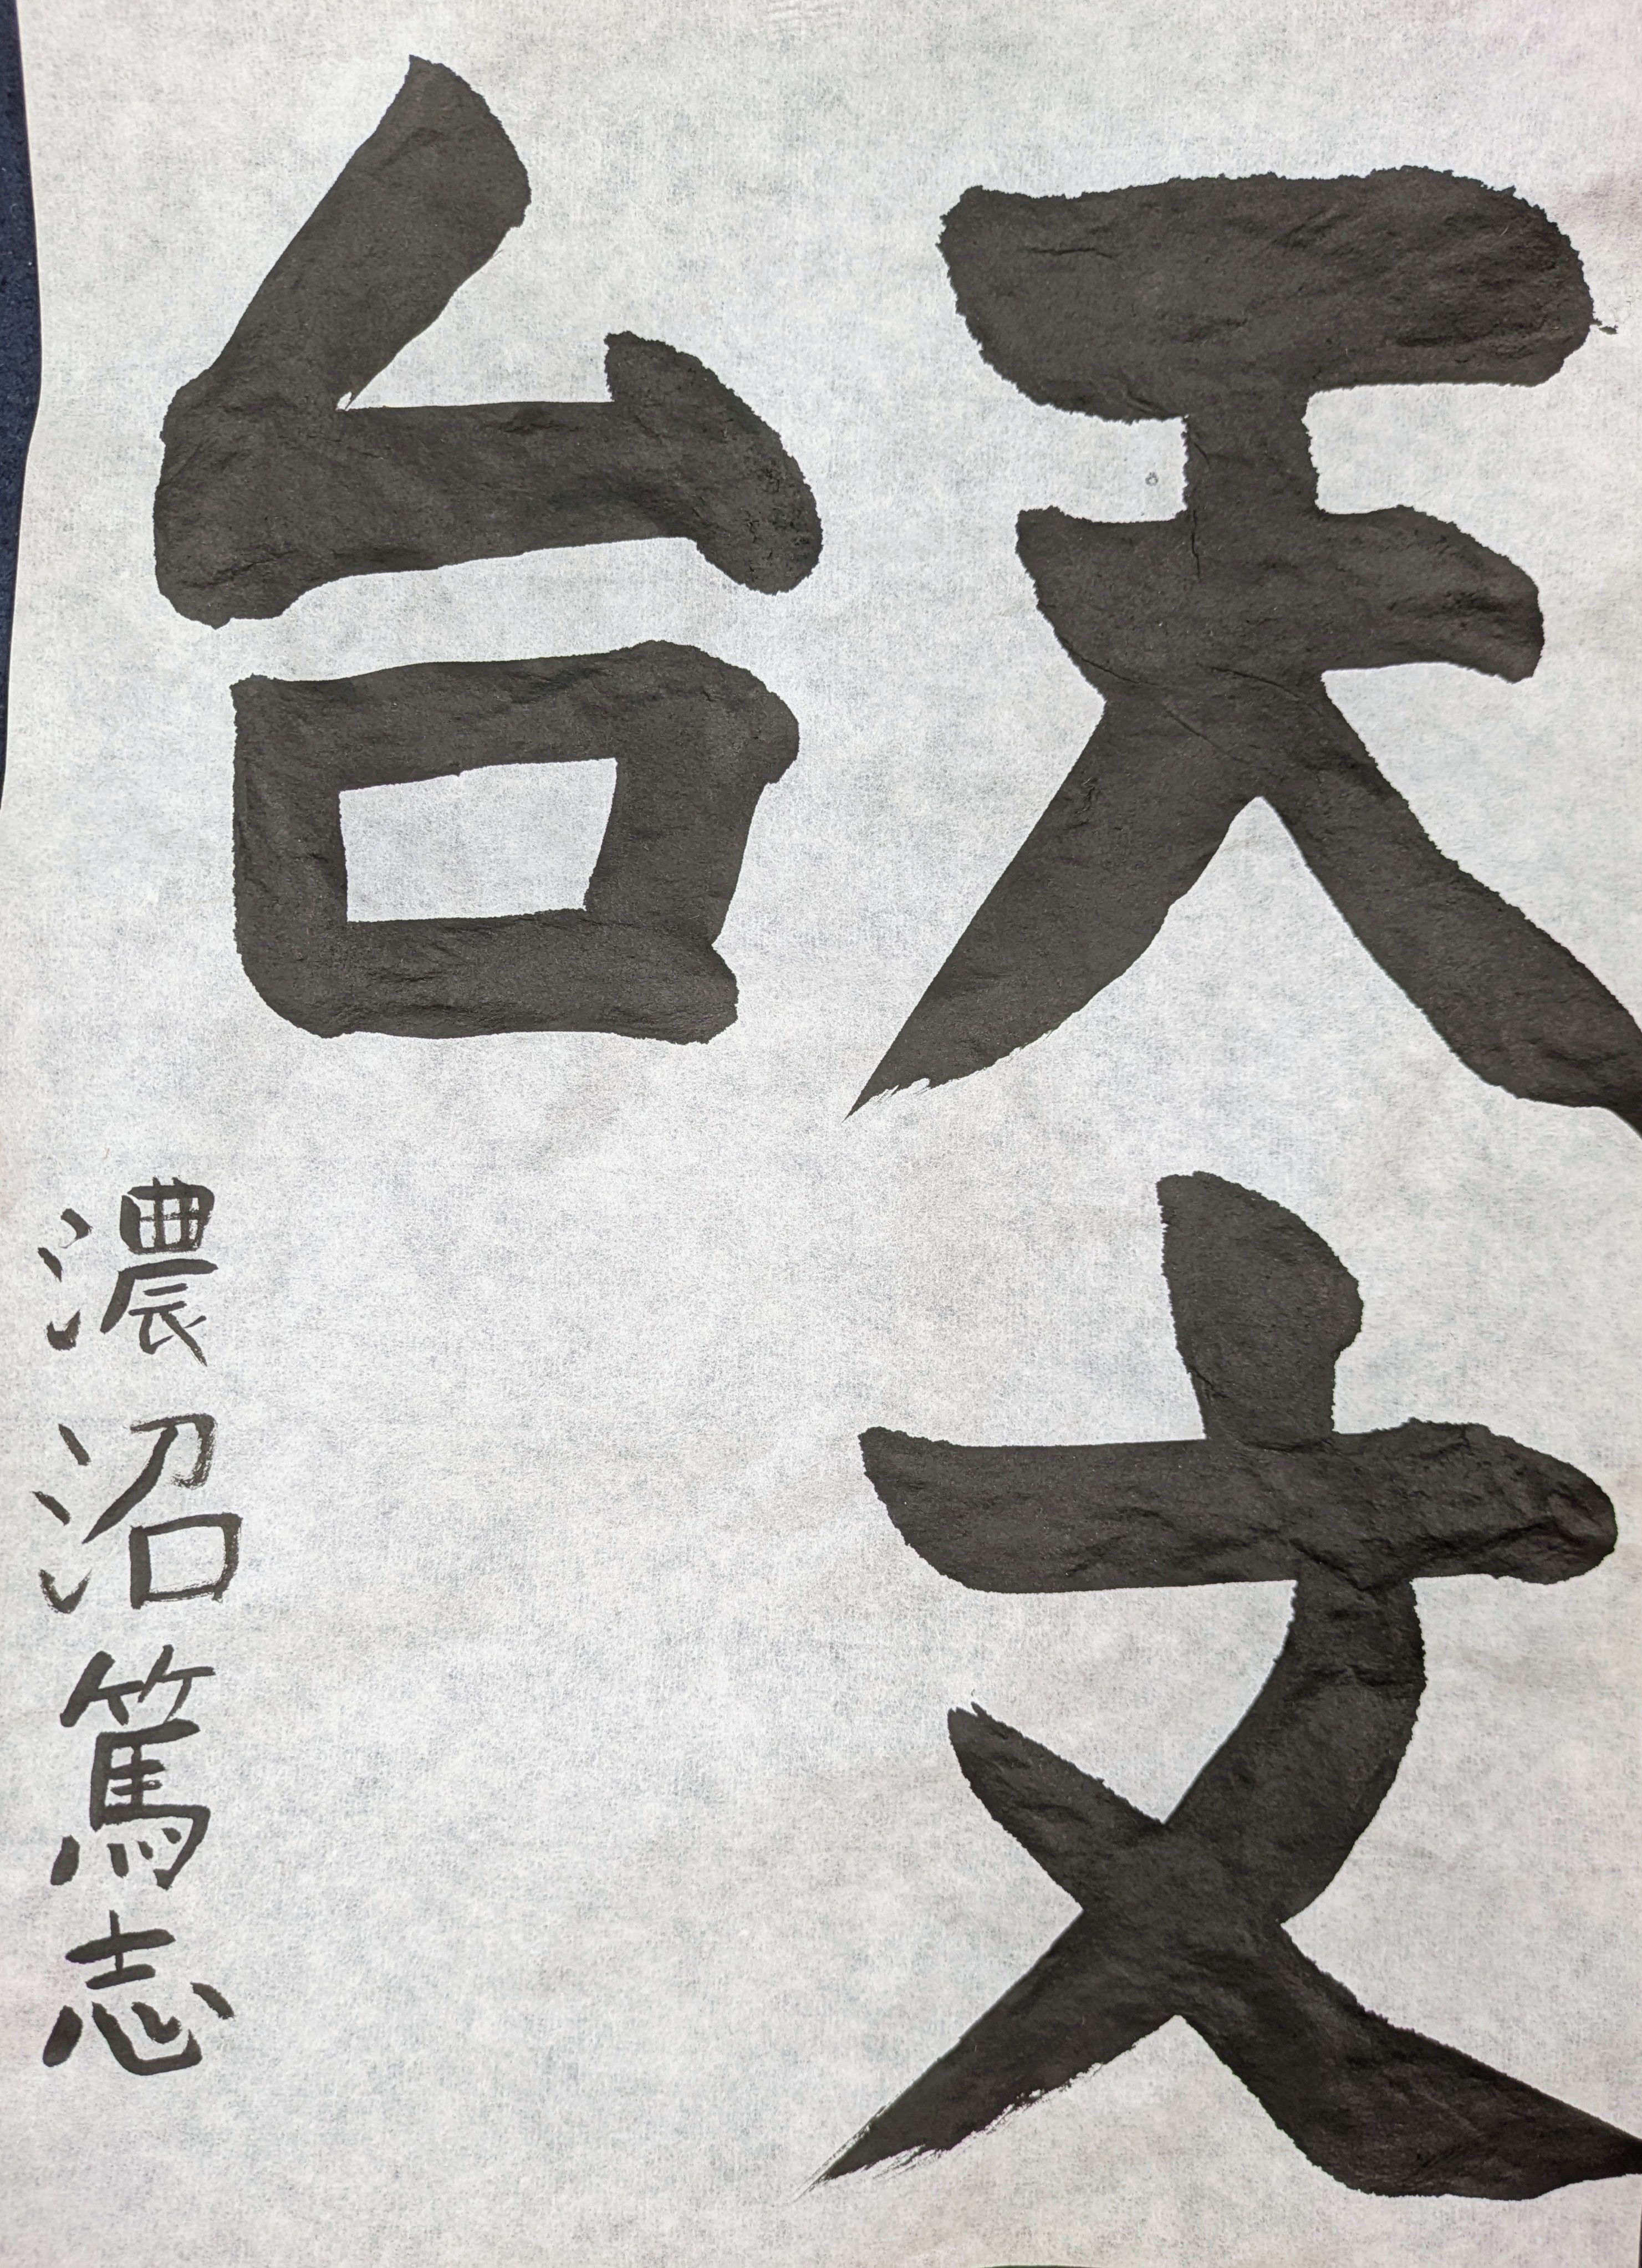 天文
台
濃沼篤志